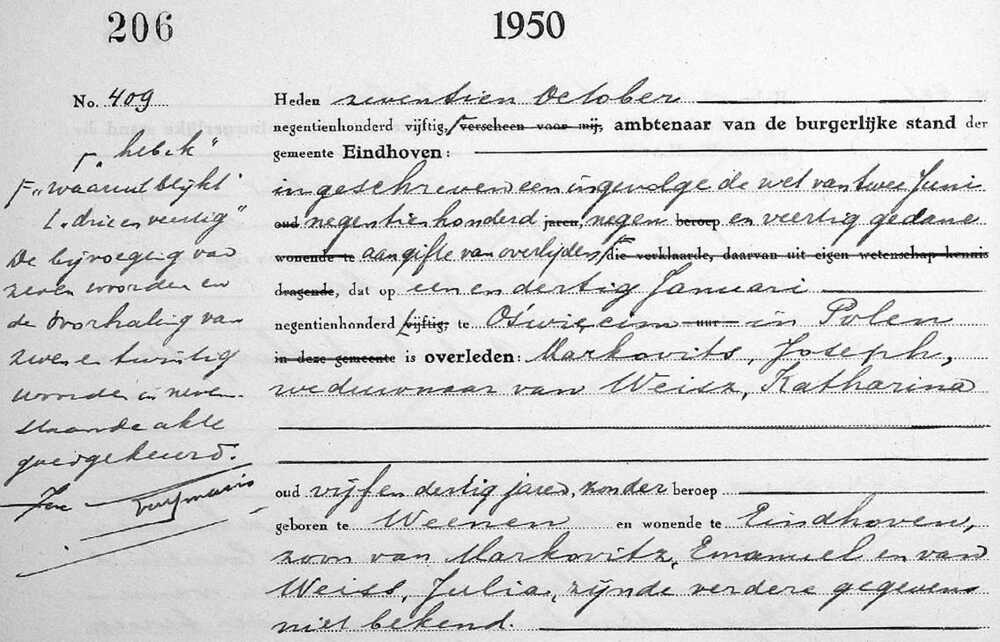 206
1950
No. 409
„heb ik"
„waaruit blijkt"
„drie en veertig"
De bijvoeging van
zeven woorden en
de doorhaling van
zeven en twintig
woorden in neven-
staande akte
goedgekeurd.
Heden zeventien October
negentienhonderd vijftig, verscheen voor mij, ambtenaar van de burgerlijke stand der
gemeente Eindhoven:
ingeschreven een ingevolge de wet van twee Juni
oud negentienhonderd jaren, negen beroep en veertig gedane
wonende te aangifte van overlijden, die verklaarde, daarvan uit eigen wetenschap kennis
dragende, dat op een en dertig Januari
negentienhonderd vijftig, te Oswiecim uur in Polen
in deze gemeente is overleden: Markovits, Joseph,
weduwnaar van Weisz, Katharina
oud vijf en dertig jaren, zonder beroep
geboren te Weenen en wonende te Eindhoven,
zoon van Markovitz, Emanuel en van
Weiss, Julia, zijnde verdere gegevens
niet bekend.